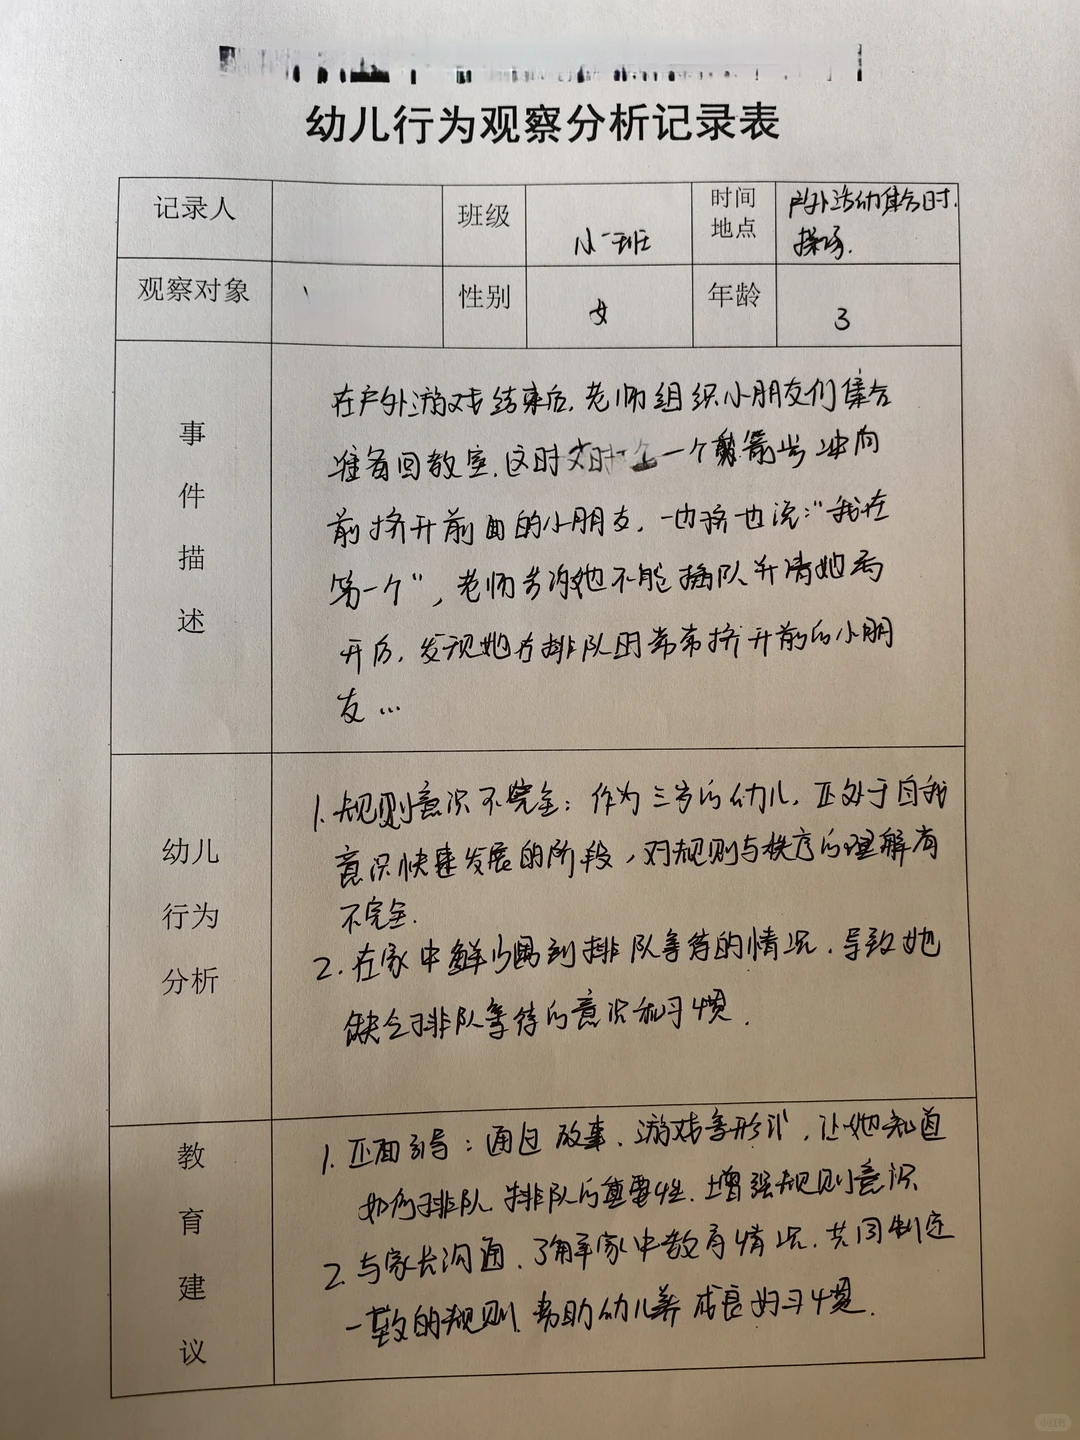 幼儿行为观察分析记录表
记录人 班级 小一班 时间地点 户外活动集合时.操场.
观察对象 性别 女 年龄 3
事件描述
在户外游戏结束后.老师组织小朋友们集合
准备回教室.这时 一个 箭步冲向
前挤开前面的小朋友,一边挤也说:"我在
第一个",老师告诉她不能插队并请她
开后,发现她在排队时常常挤开前的小朋
友...
幼儿行为分析
1.规则意识不完全:作为三岁的幼儿,正处于自我
意识快速发展的阶段,对规则与秩序的理解有
不完全.
2.在家中鲜少遇到排队等待的情况.导致她
缺乏排队等待的意识和习惯.
教育建议
1.正面引导:通过故事.游戏等形式,让她知道
如何排队.排队的重要性.增强规则意识
2.与家长沟通.了解家中教育情况.共同制定
一致的规则.帮助幼儿养成良好习惯.
小红书